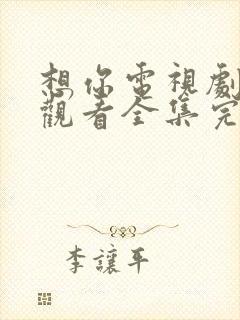 想你電視劇
觀看全集完
李讓平